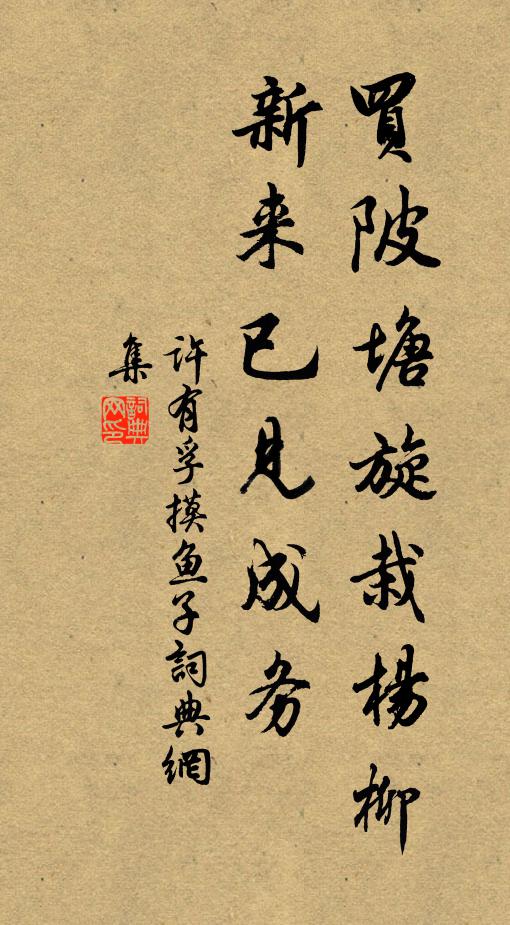 買陂塘旋栽楊柳
新来已見成务
許有孚摸鱼子詞典網
集
詞典網印